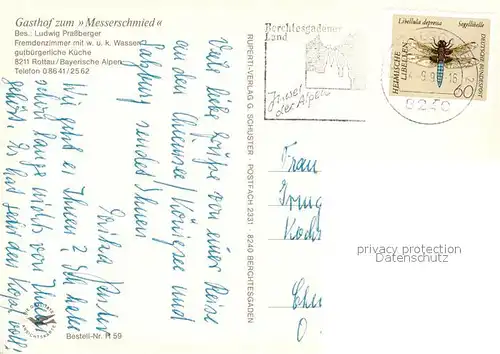 Gasthof zum »Messerschmied«
Bes.: Ludwig Praßberger
Fremdenzimmer mit w. u. k. Wasser
gutbürgerliche Küche
8211 Rottau/Bayerische Alpen
Telefon 0 86 41 / 25 62
Viele liebe Grüße von einer Reise
an den Chiemsee/Königssee und
Salzburg sendet Ihnen
Wir geht es Ihnen? Ich habe
schon lange nichts von Ihnen
gehört. Es hat jeder den Kopf voll!
Bestell-Nr. R 59
RUPERTI-VERLAG G. SCHUSTER · POSTFACH 2331 · 8240 BERCHTESGADEN
Berchtesgadener
Land
der Alpen
Libellula depressa Segellibelle
HEIMISCHE
LIBELLEN
DEUTSCHE BUNDESPOST
60
8240
Frau
Irmg
Koch
privacy protection
DELCAMPE